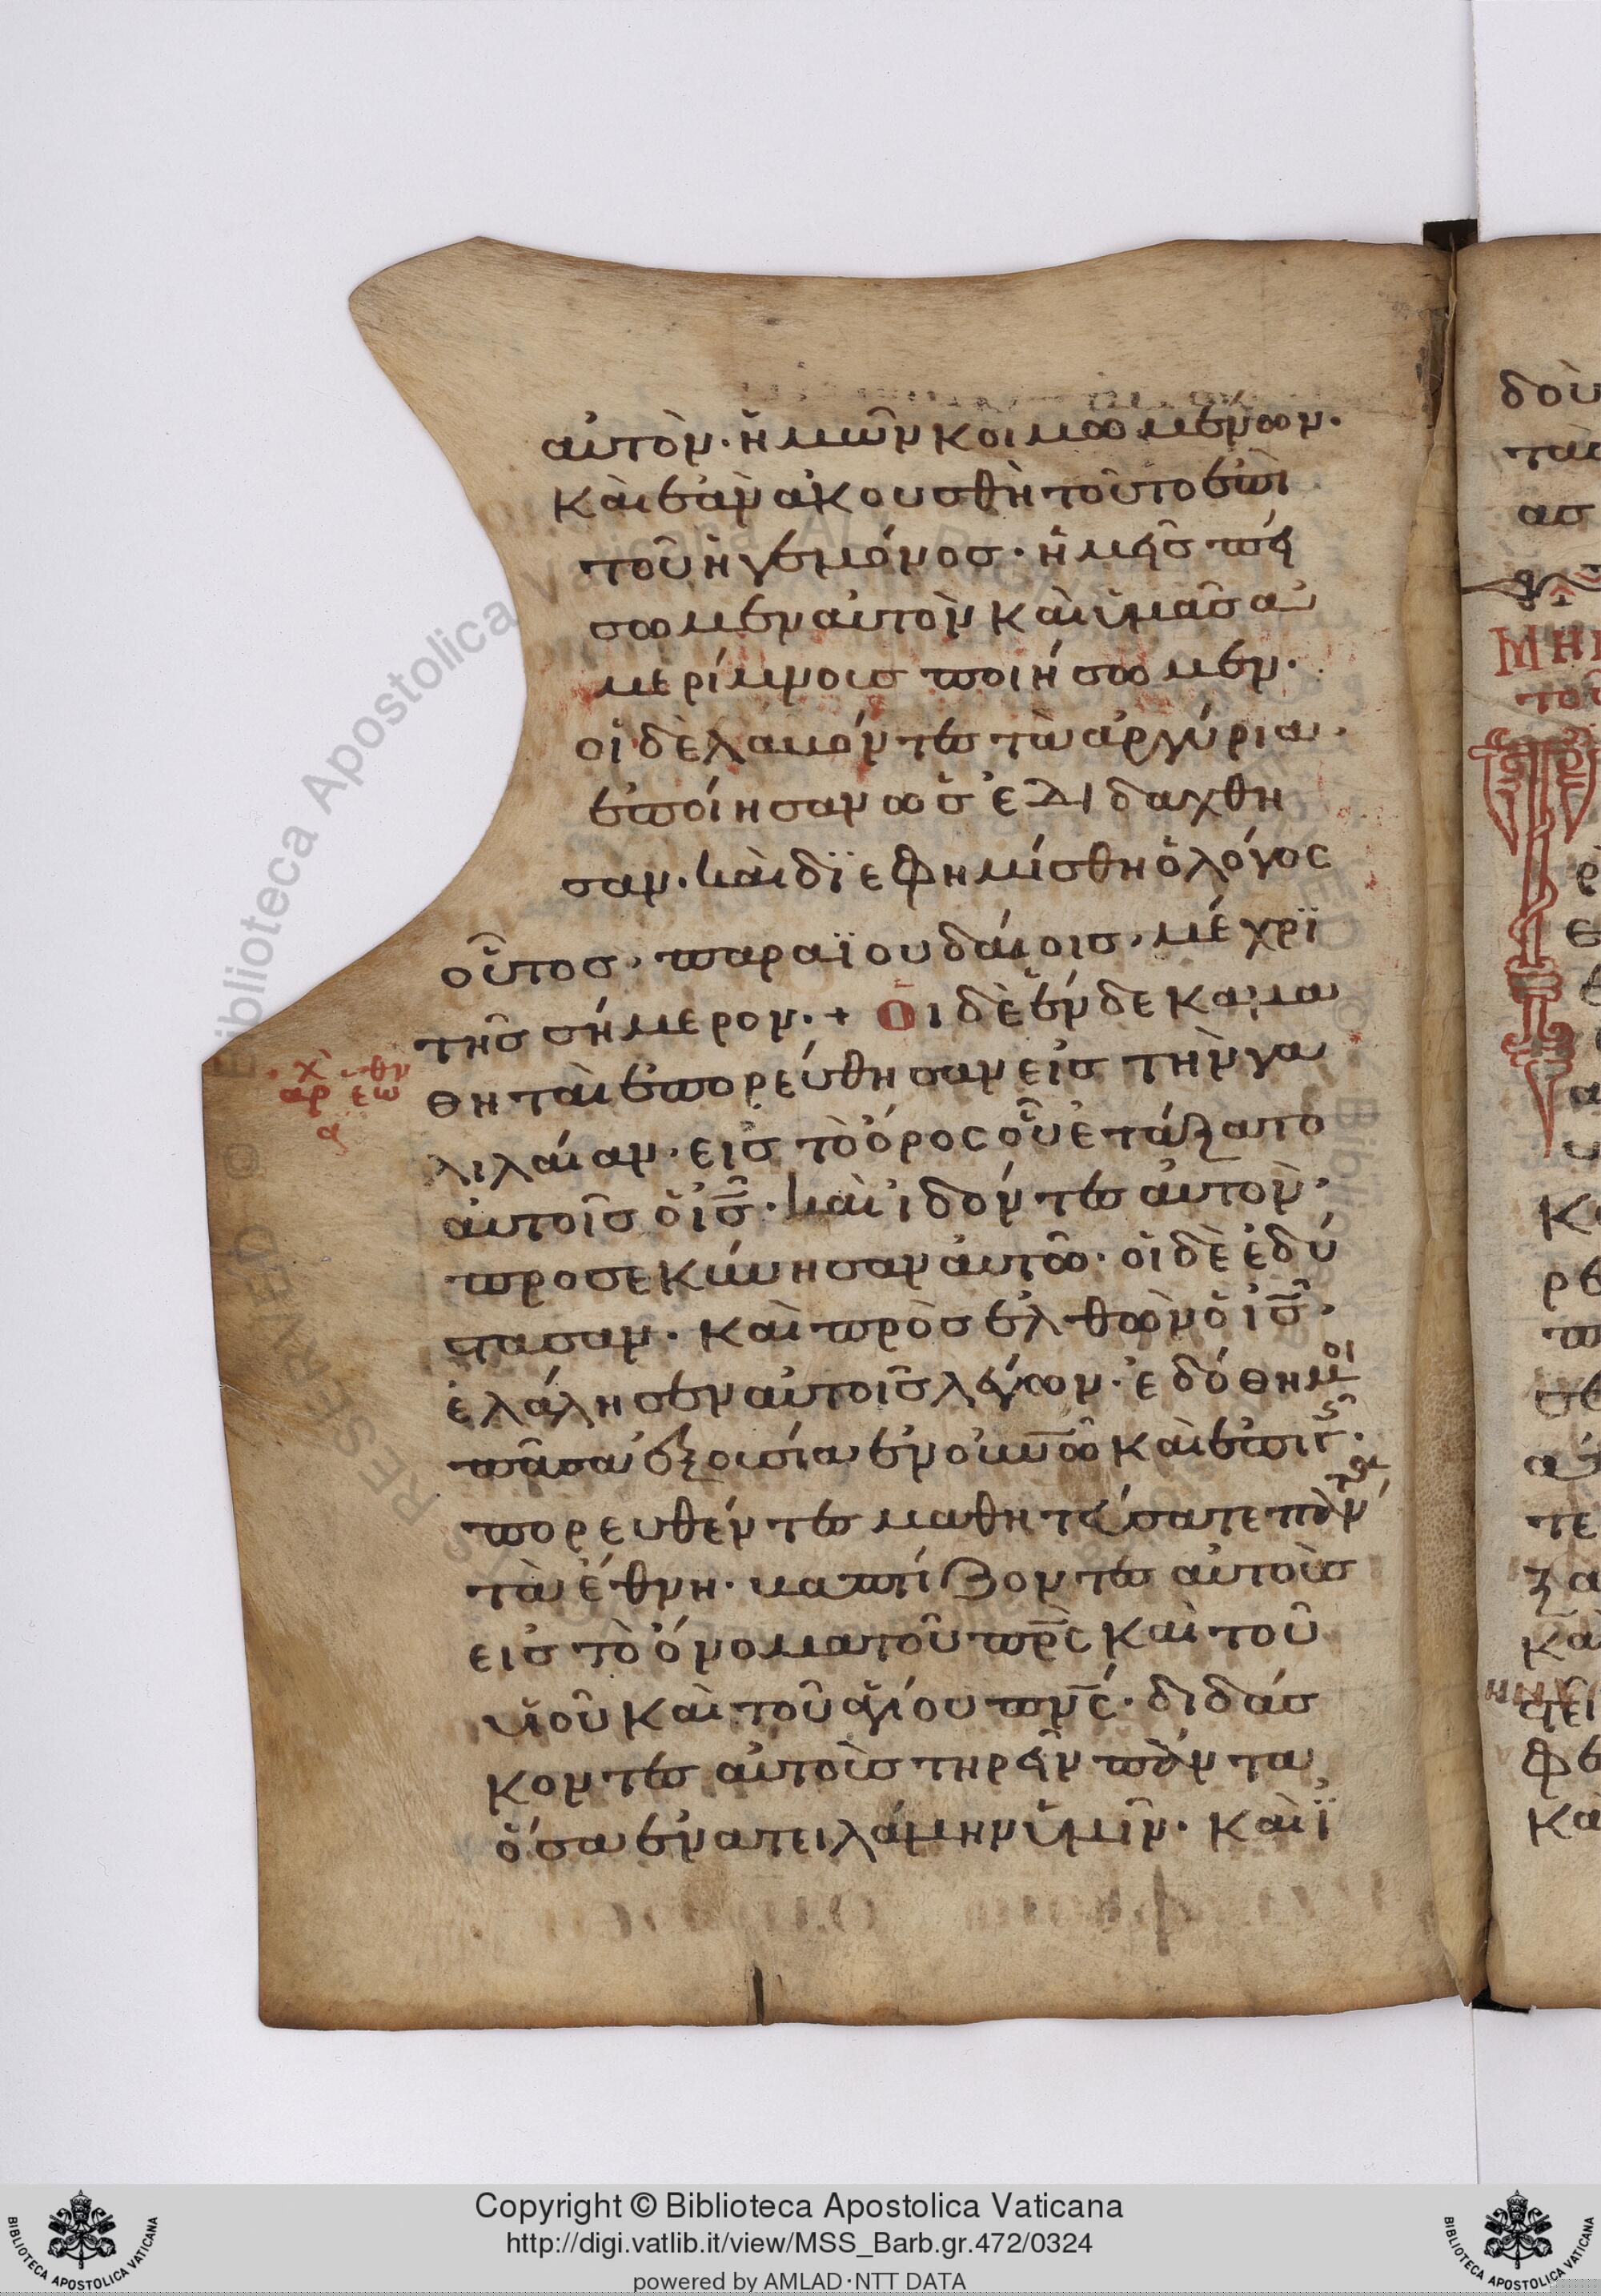 αὐτὸν· ἡμῶν κοιμωμένων·
Καὶ ἐὰν ἀκουσθὴ τοῦτο ἐπὶ
τοῦ ἡγεμόνος· ἡμεῖς πεί
σωμεν αὐτὸν καὶ ὑμᾶς ἀ
μερίμνους ποιήσωμεν·
οἱ δὲ λαβόντες τὰ ἀργύρια·
ἐποίησαν ὡς ἐδιδάχθη
σαν· καὶ διεφημίσθη ὁ λόγος
οὗτος· παρα ϊουδαίοις· μέχρϊ
τῆς σήμερον·+ Οἱ δὲ ἕνδεκα μα
θηταὶ ἐπορεύθησαν εἰς τὴν γα
λιλαίαν· εἰς τὸ ὄρος οὗ ἐτάξατο
αὐτοῖς ὁ ις· καὶ ἰδόντες αὐτὸν·
προσεκύνησαν αὐτῶ· οἱ δὲ ἐδί
στασαν· καὶ προσελθὼν ὁ ις·
ἐλάλησεν αὐτοῖς λέγων· ἐδόθη μοι
πᾶσα ἐξουσία ἐν οὐνῶ καὶ ἐπὶ γῆς·
πορευθέντες μαθητεύσατε πάντα
τὰ ἔθνη· βαπτίζοντες αὐτοὺς
εἰς τὸ ὄνομα τοῦ πρς καὶ τοῦ
υἱοῦ καὶ τοῦ ἁγίου πνς· διδάσ
κοντες αὐτοὺς τηρεῖν πάντα
ὅσα ἐνατειλάμην ὑμῖν· Καὶ ϊ
δοὺ
Copyright © Biblioteca Apostolica Vaticana
http://digi.vatlib.it/view/MSS_Barb.gr.472/0324
powered by AMLAD·NTT DATA
BIBLIOTECA APOSTOLICA VATICANA
BIBLIOTECA APOSTOLICA VATICANA